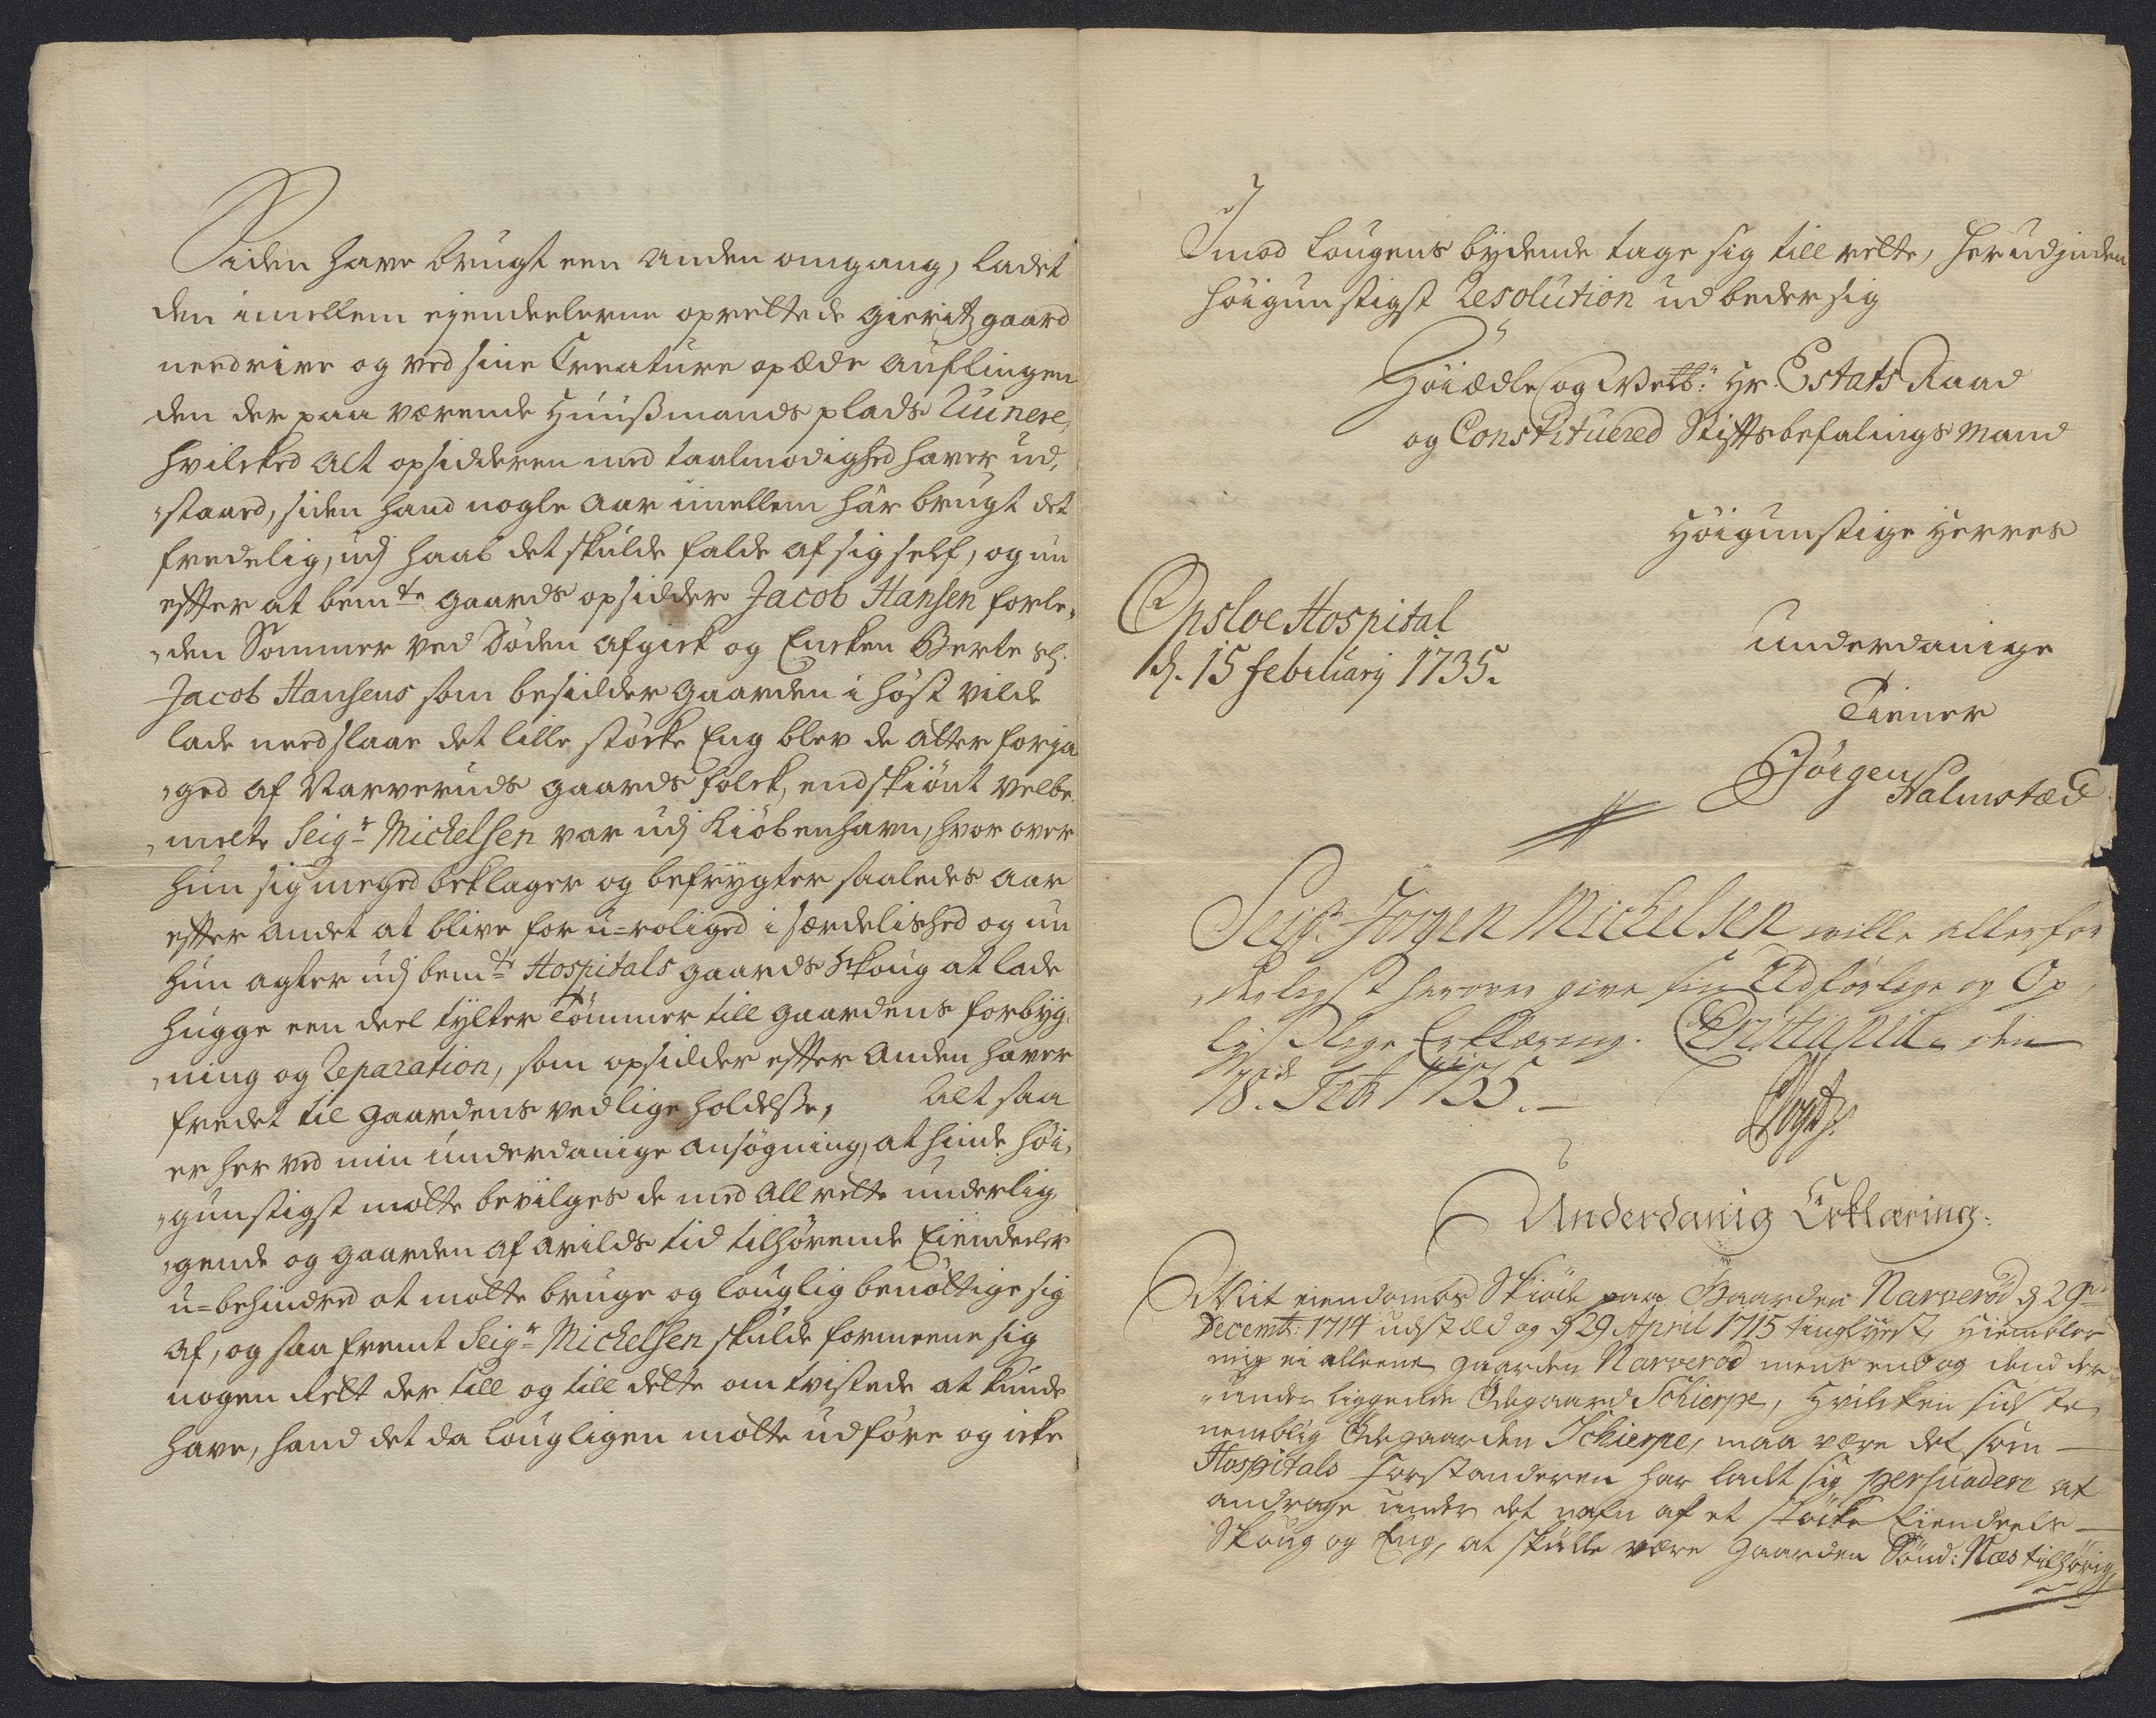 Siden have brugt een anden omgang, ladet
den imellem ejendeelerne oprettede gieritz gaard
need rive og ved sine Creature opæde auflingen
den der paa værende Huusmands plads Ruinere,
hvilcked alt opsidderen med taalmodighed haver ud,
„staaed, siden hand nogle aar imellem har brugt det
fredelig, udj haab det skulde falde af sig self, og nu
efter at bemte gaards opsidder Jacob Hansen forle„
„den Sommer ved døden afgick og Encken Berte Sl.
Jacob Hansens som besidder gaarden i høst vilde
lade needslaae det lille støcke Eng blev de atter forja
„ged af Narveruds gaards folck, endskiønt velbe„
„melte Seigr Michelsen var udj Kiøbenhavn, hvor over
hun sig meged beklager og befrygter saaledes aar
efter andet at blive for u=roliged i særdelished og nu
hun agter udj bemte Hospitals gaards Skoug at lade
hugge een deel tylter Tømmer till gaardens forbyg„
„ning og Reparation, som opsidder efter anden haver
fredet til gaardens vedlige holdelse, Alt saa
er her ved min underdanige ansøgning, at hinde høi„
„gunstigst motte bevilges de med all rette underlig„
„gende og gaarden af arilds tid tilhørende Eiendeeler
u=behindred at motte bruge og louglig benøttige sig
af, og saa fremt Seigr Michelsen skulde formeene sig
nogen Rett der till og till dette omtvistede at kunde
have, hand det da lougligen motte udføre og icke
Imod Lougens bydende tage sig till rette, her udjnden
høigunstigst Resolution udbeder sig
Høiædle og Velb: Hr. Estats Raad
og Constituered Stiftsbefalings Mand
Høigunstige Herres
Opsloe Hospital
d. 15 februarij 1735.
underdanige
Tiener
Jørgen
Halmstæd
Seigr. Jørgen Michelsen wille allerfor
„derligst herover give sin Udførlige og Op„
lyslige Erklæring. Christiania den
18de Feb 1735.
Underdanig Erklæring.
Mit eiendombs Skiøde paa Gaarden Narverød d 29de
Decembr: 1714 udstæd og d 29 April 1715 tinglyest, Hiembler
mig ei alleene gaarden Narverød mens end og dend der„
„under liggende Ødegaard Schierpe, Hvilcken sidste
nemblig Ødegaarden Schierpe, maa være det som
Hospitals Forstanderen har ladt sig persuadere at
andrage under det nafn af et støcke Eiendeels
Skoug og Eng, at skulle være Gaarden Sønd: Næs tilhørig,